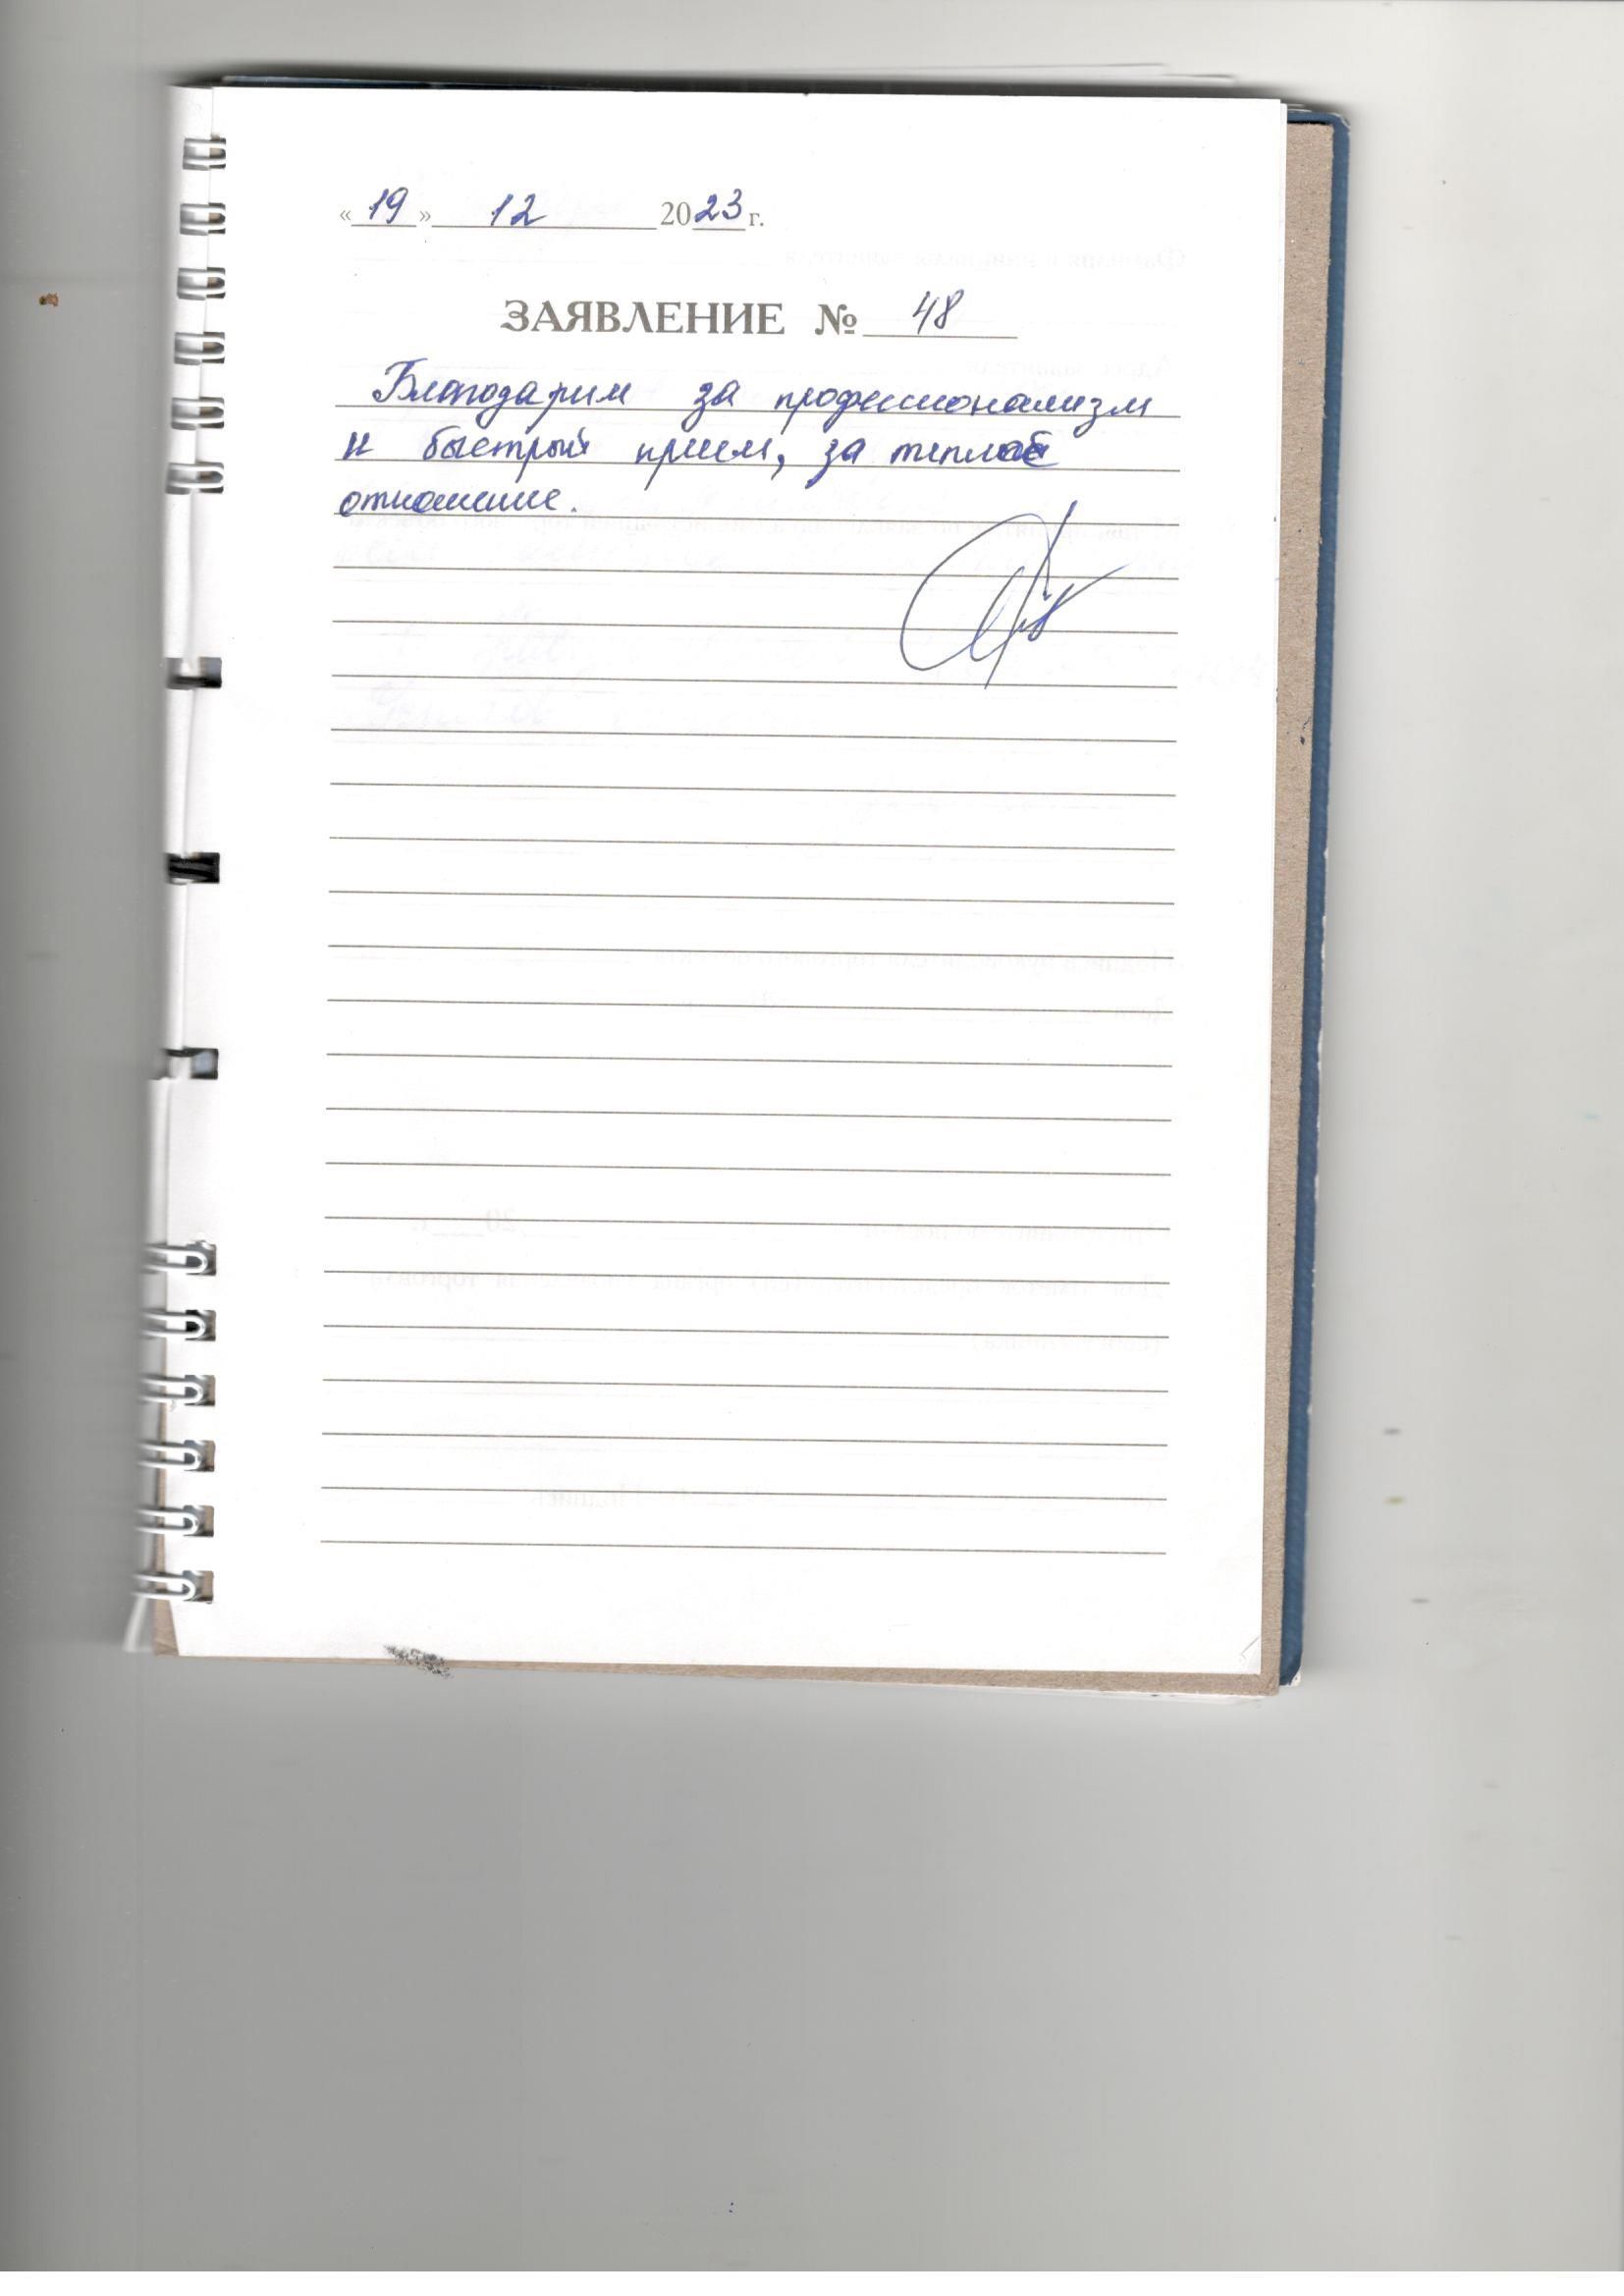 «19» 12 2023 г.
ЗАЯВЛЕНИЕ № 48
Благодарим за профессионализм
и быстрый прием, за теплое
отношение.